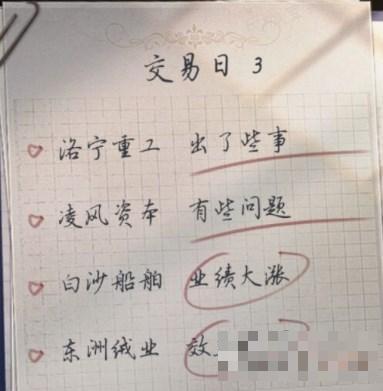 交易日 3
洛宁重工 出了些事
凌风资本 有些问题
白沙船舶 业绩大涨
东洲绒业 效